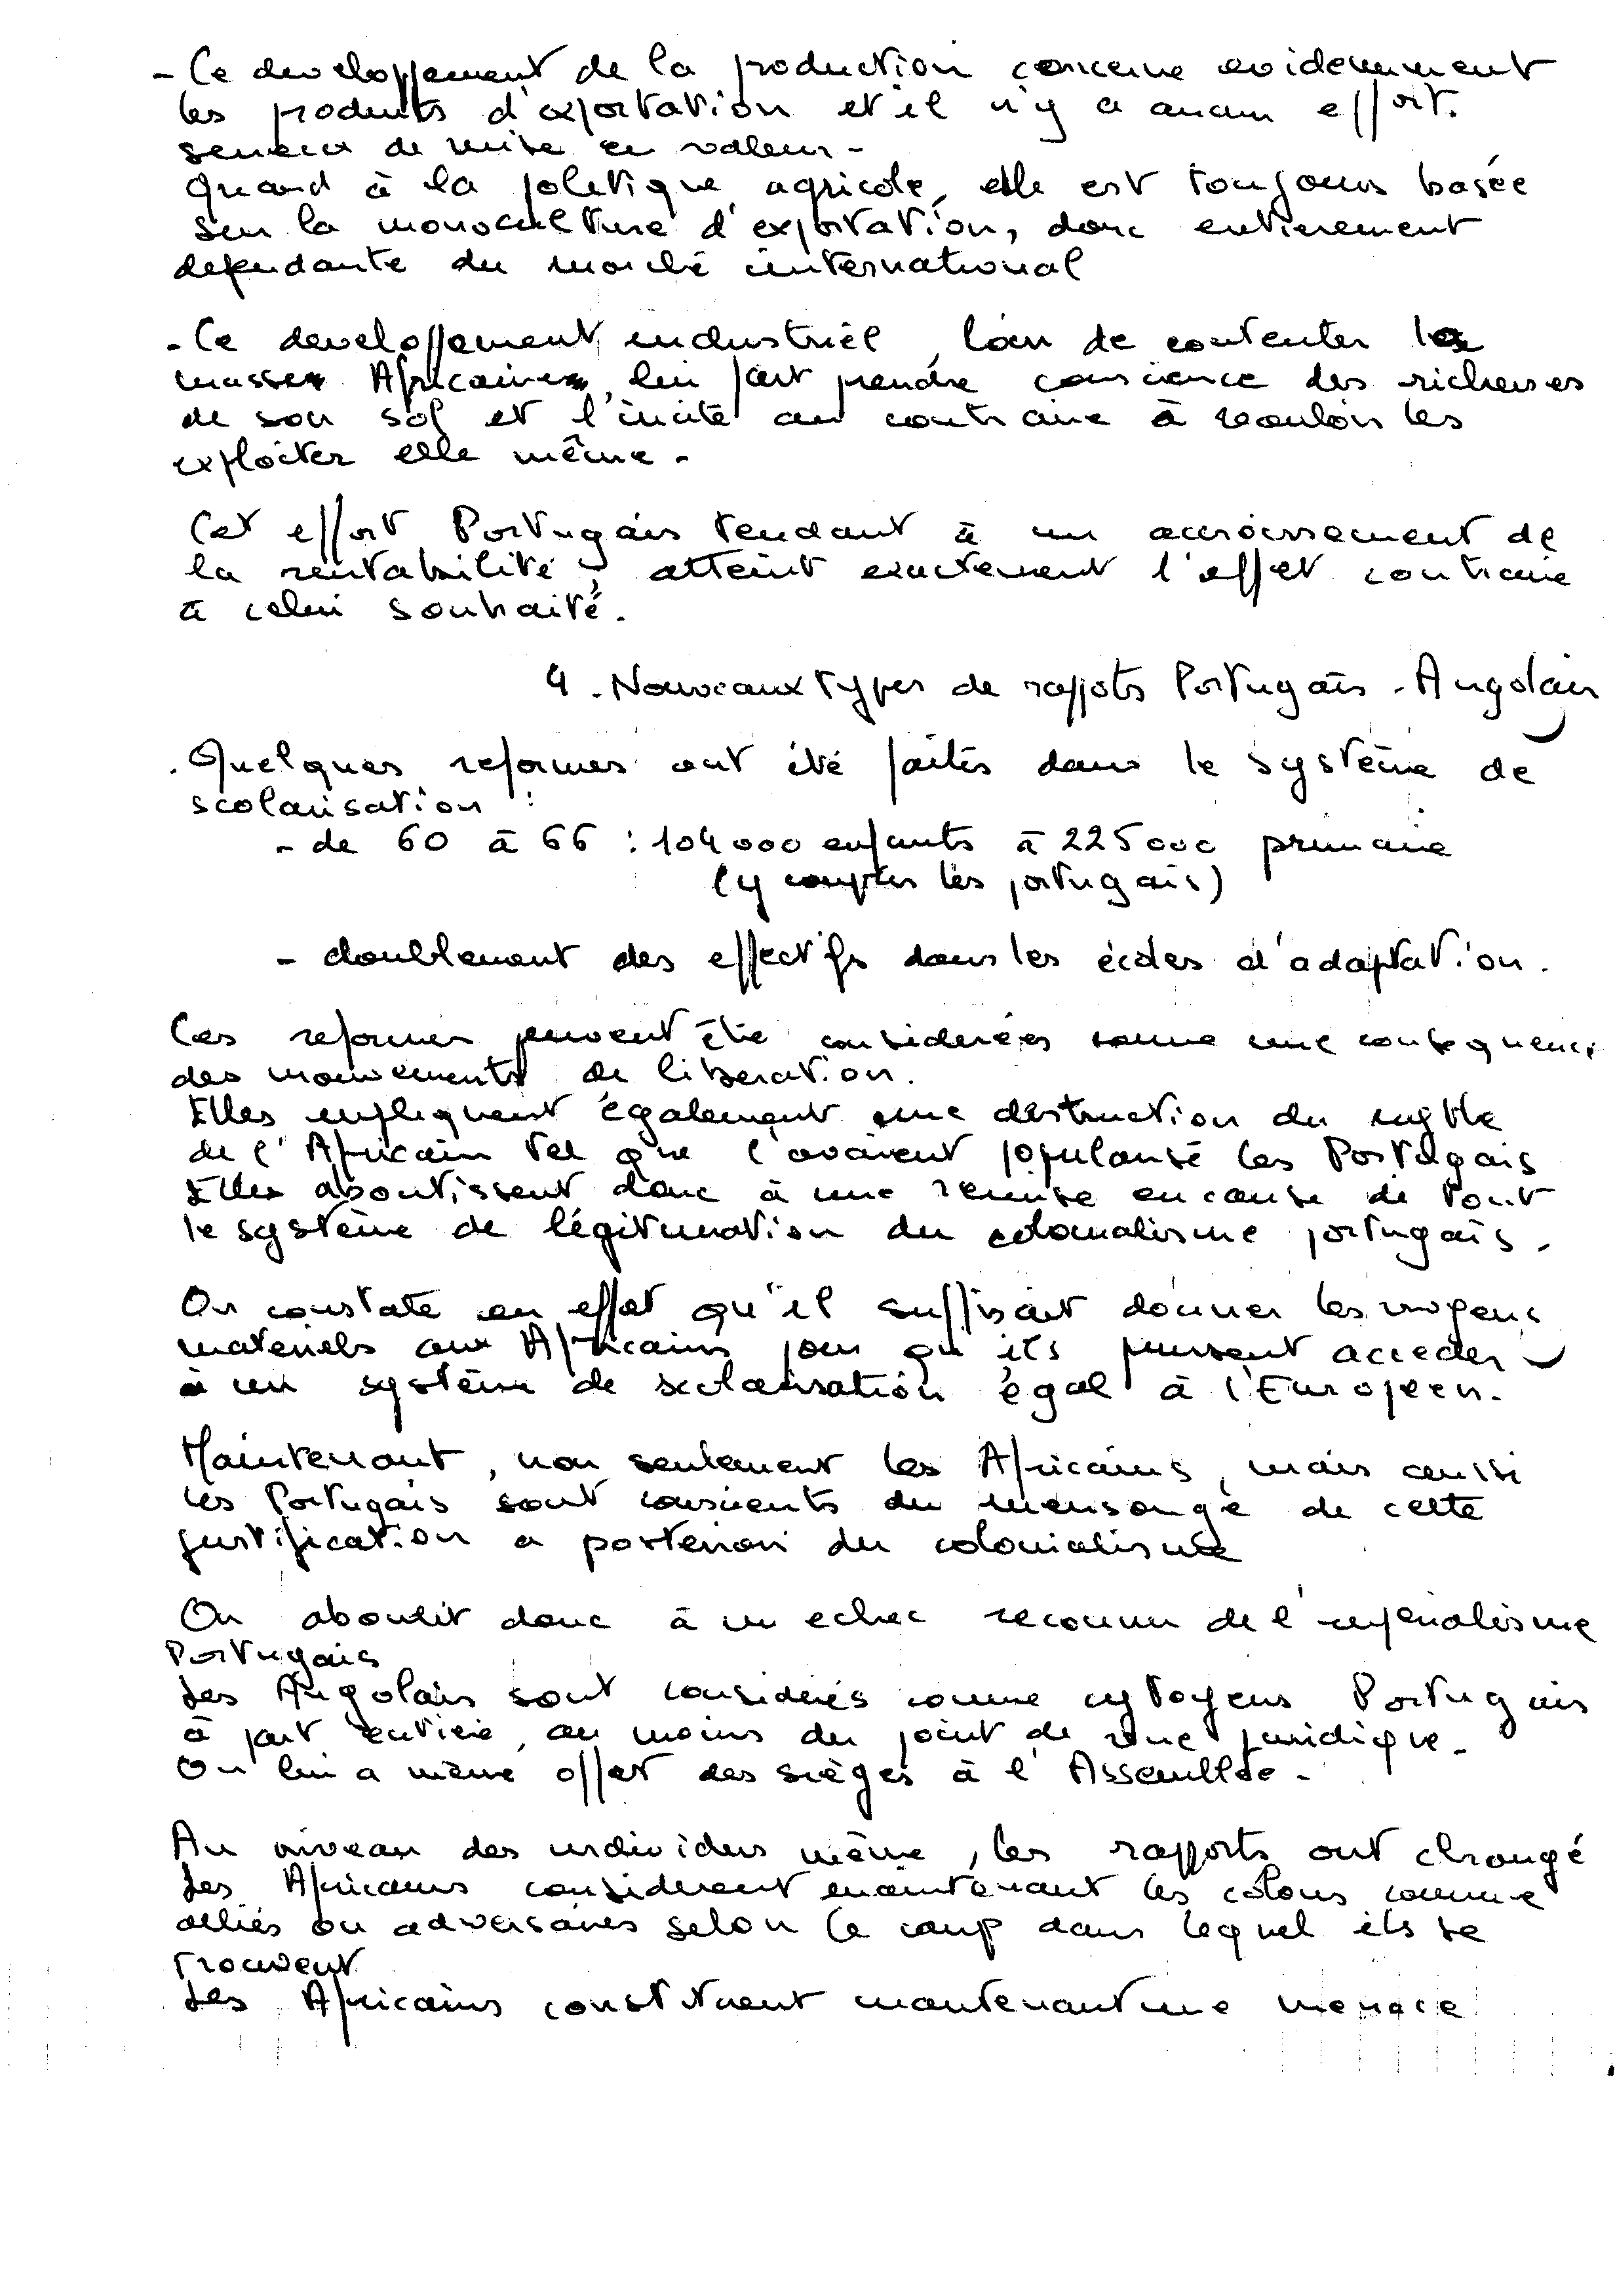 - Ce developpement de la production concerne evidemment
les produits d'exportation et il n'y a aucun effort
serieux de mise en valeur -
Quand à la politique agricole, elle est toujours basée
sur la monoculture d'exportation, donc entierement
dependante du marché international
- Ce developpement industriel, loin de contenter la
masse Africaine, lui fait prendre conscience des richesses
de son sol et l'incite au contraire à vouloir les
exploiter elle même -
Cet effort Portugais tendant à un accroissement de
la rentabilité, atteint exactement l'effet contraire
à celui souhaité.
4. Nouveaux types de rapports Portugais - Angolais
. Quelques reformes ont été faites dans le système de
scolarisation :
- de 60 à 66 : 104 000 enfants à 225 000 primaire
(y compris les portugais)
- doublement des effectifs dans les écoles d'adaptation.
Ces reformes peuvent être considerées comme une consequence
des mouvements de liberation.
Elles impliquent également une destruction du mythe
de l'Africain tel que l'avaient popularisé les Portugais
Elles aboutissent donc à une remise en cause de tout
le système de légitimation du colonialisme portugais -
On constate en effet qu'il suffisait donner les moyens
materiels aux Africains pour qu'ils puissent acceder
à un système de scolarisation égal à l'Europeen -
Maintenant, non seulement les Africains, mais aussi
les Portugais sont conscients du mensonge de cette
justification a posteriori du colonialisme
On aboutit donc à un echec reconnu de l'imperialisme
Portugais
Les Angolais sont considerés comme cytoyens Portugais
à part entière, au moins du point de vue juridique -
On lui a même offert des sièges à l'Assemblée -
Au niveau des individus même, les rapports ont changé
Les Africains considerent maintenant les colons comme
alliés ou adversaires selon le camp dans lequel ils se
trouvent
Les Africains constituent maintenant une menace